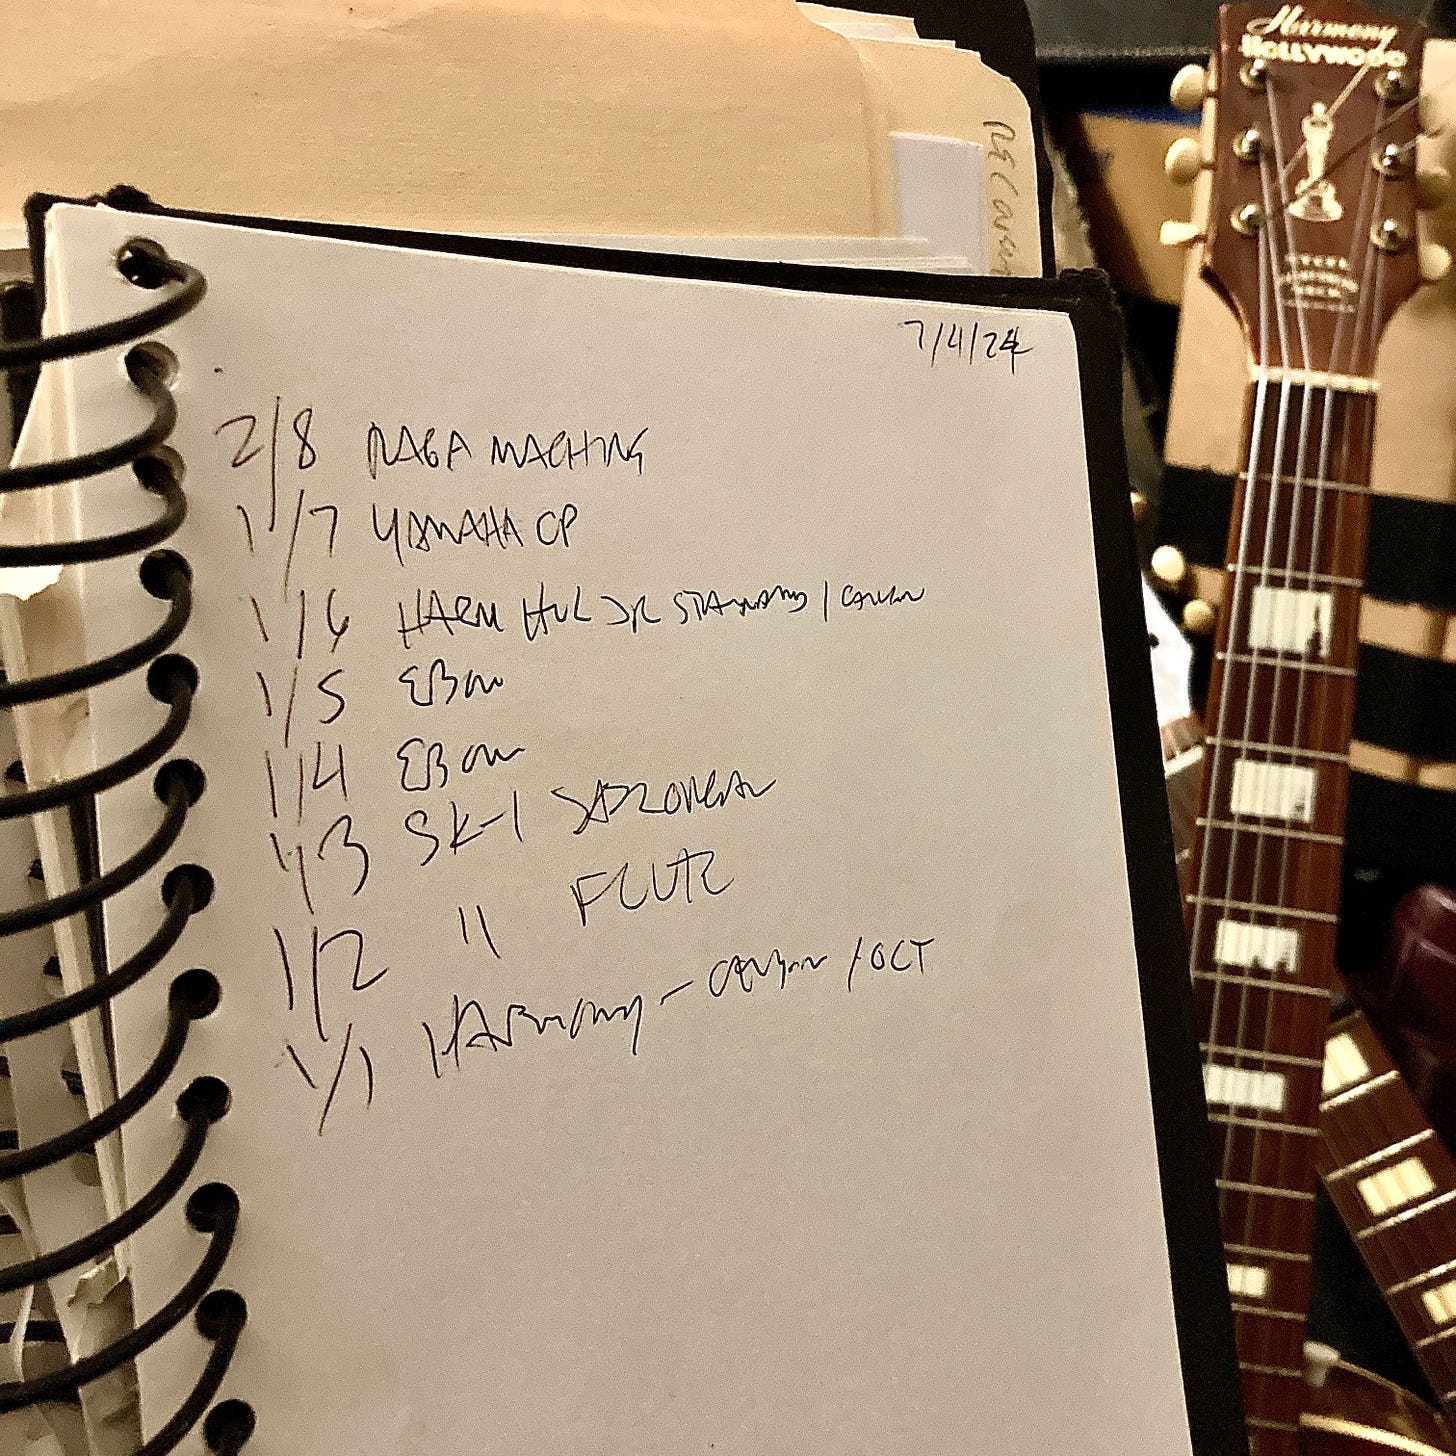 7/4/24
2/8 RAGA MACHINE
1/7 YAMAHA CP
1/6 HARM HOL JR STANDARD /
1/5 EBOW
1/4 EBOW
1/3 SK-1
1/2 " FLUTE
1/1 HARMONY - /OCT
Harmony
HOLLYWOOD